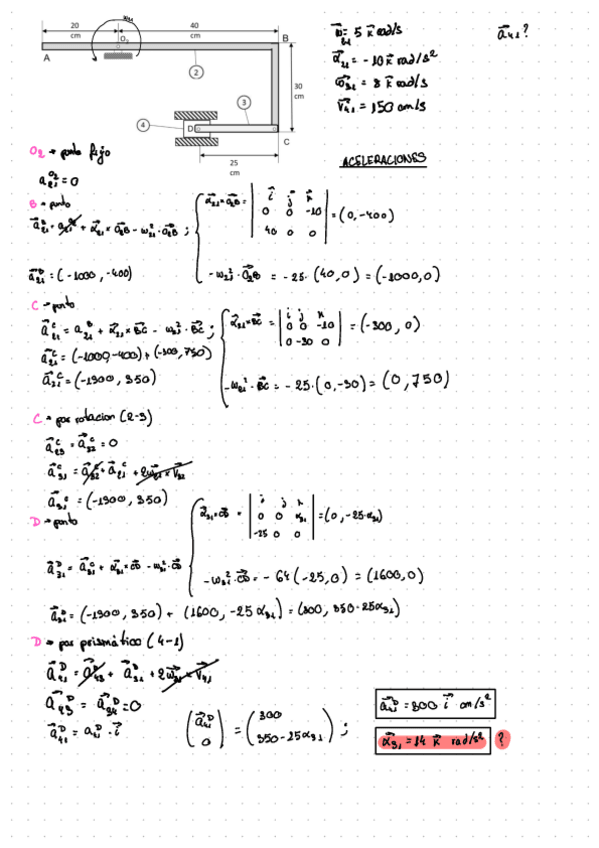 20 cm
40 cm
ω₂₁
O₂
A
B
2
30 cm
3
4
D
C
25 cm
ω⃗₂₁ = 5 k⃗ rad/s
α⃗₂₁ = -10 k⃗ rad/s²
ω⃗₃₁ = 8 k⃗ rad/s
v⃗₄₁ = 150 cm/s
a⃗₄₁?
ACELERACIONES
O₂ → punto fijo
a₂₁^O₂ = 0
B → punto
a⃗₂₁^B = a⃗₂₁^O₂ + α⃗₂₁ × O₂B - ω₂₁² · O₂B ;
α⃗₂₁ × O₂B = | i⃗ j⃗ k⃗ | 0 0 -10 | 40 0 0 | = (0, -400)
-ω₂₁² · O₂B = -25 · (40,0) = (-1000,0)
a⃗₂₁^B = (-1000, -400)
C → punto
a⃗₂₁^C = a₂₁^B + α⃗₂₁ × BC - ω₂₁² · BC ;
α⃗₂₁ × BC = | i j k | 0 0 -10 | 0 -30 0 | = (-300, 0)
a⃗₂₁^C = (-1000, -400) + (-300, 750)
a⃗₂₁^C = (-1300, 350)
-ω₂₁² · BC = -25 · (0, -30) = (0, 750)
C → par rotacion (2-3)
a⃗₂₃^C = a⃗₃₂^C = 0
a⃗₃₁^C = a⃗₃₂^C + a⃗₂₁^C + 2ω⃗₂₁ × v⃗₃₂
a⃗₃₁^C = (-1300, 350)
D → punto
α⃗₃₁ × CD = | i j k | 0 0 α₃₁ | -25 0 0 | = (0, -25α₃₁)
a⃗₃₁^D = a⃗₃₁^C + α⃗₃₁ × CD - ω₃₁² · CD
-ω₃₁² · CD = -64(-25,0) = (1600,0)
a⃗₃₁^D = (-1300, 350) + (1600, -25α₃₁) = (300, 350-25α₃₁)
D → par prismático (4-1)
a⃗₄₁^D = a⃗₄₃^D + a⃗₃₁^D + 2ω⃗₃₁ × v⃗₄₁
a⃗₄₃^D = a⃗₃₄^D = 0
a⃗₄₁^D = a₄₁^D · i⃗
(a⃗₄₁^D 0) = (300 350-25α₃₁) ;
a⃗₄₁^D = 300 i⃗ cm/s²
α⃗₃₁ = 14 k⃗ rad/s² ?